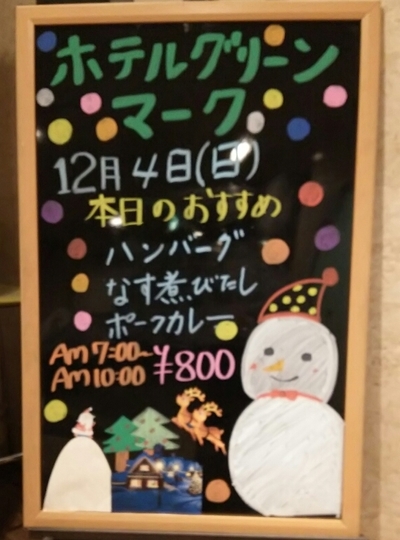 ホテルグリーン
マーク
12月4日(日)
本日のおすすめ
ハンバーグ
なす煮びたし
ポークカレー
Am 7:00~
Am 10:00 ¥800